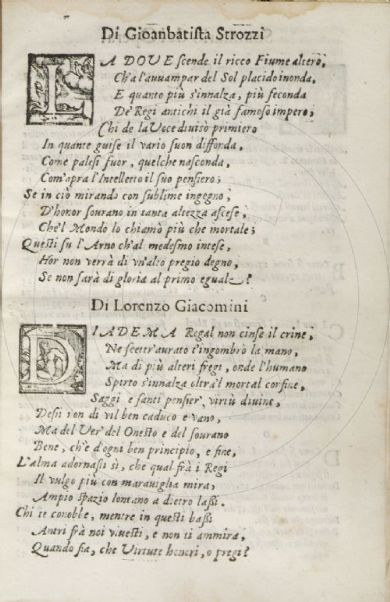 Di Gioanbatista Strozzi
LA DOVE scende il ricco Fiume altero,
Ch'a l'auuampar del Sol placido inonda,
E quanto più s'innalza, più feconda
De' Regi antichi il già famoso impero;
Chi de la Voce diuisò primiero
In quante guise il vario suon diffonda,
Come palesi fuor, quel che nasconda,
Com'apra l'Intelletto il suo pensiero;
Se in ciò mirando con sublime ingegno,
D'honor sourano in tanta altezza ascese,
Che'l Mondo lo chiamò più che mortale;
Questi su l'Arno ch'al medesmo intese,
Hor non verrà di vn'alto pregio degno,
Se non sarà di gloria al primo eguale?
Di Lorenzo Giacomini
DIADEMA Regal non cinse il crine,
Ne scettr'aurato t'ingombrò la mano,
Ma di più alteri fregi, onde l'humano
Spirto s'innalza oltra'l mortal confine,
Saggi e santi pensier, virtù diuine,
Desii non di vil ben caduco e vano,
Ma del Ver del Onesto e del sourano
Bene, ch'è d'ogni ben principio, e fine,
L'alma adornasti sì, che qual frà i Regi
Il vulgo più con marauiglia mira,
Ampio spazio lontano a dietro lassi.
Chi te conobbe, mentre in questi bassi
Antri frà noi viuesti, e non ti ammira,
Quando fia, che Virtute honori, o pregi?